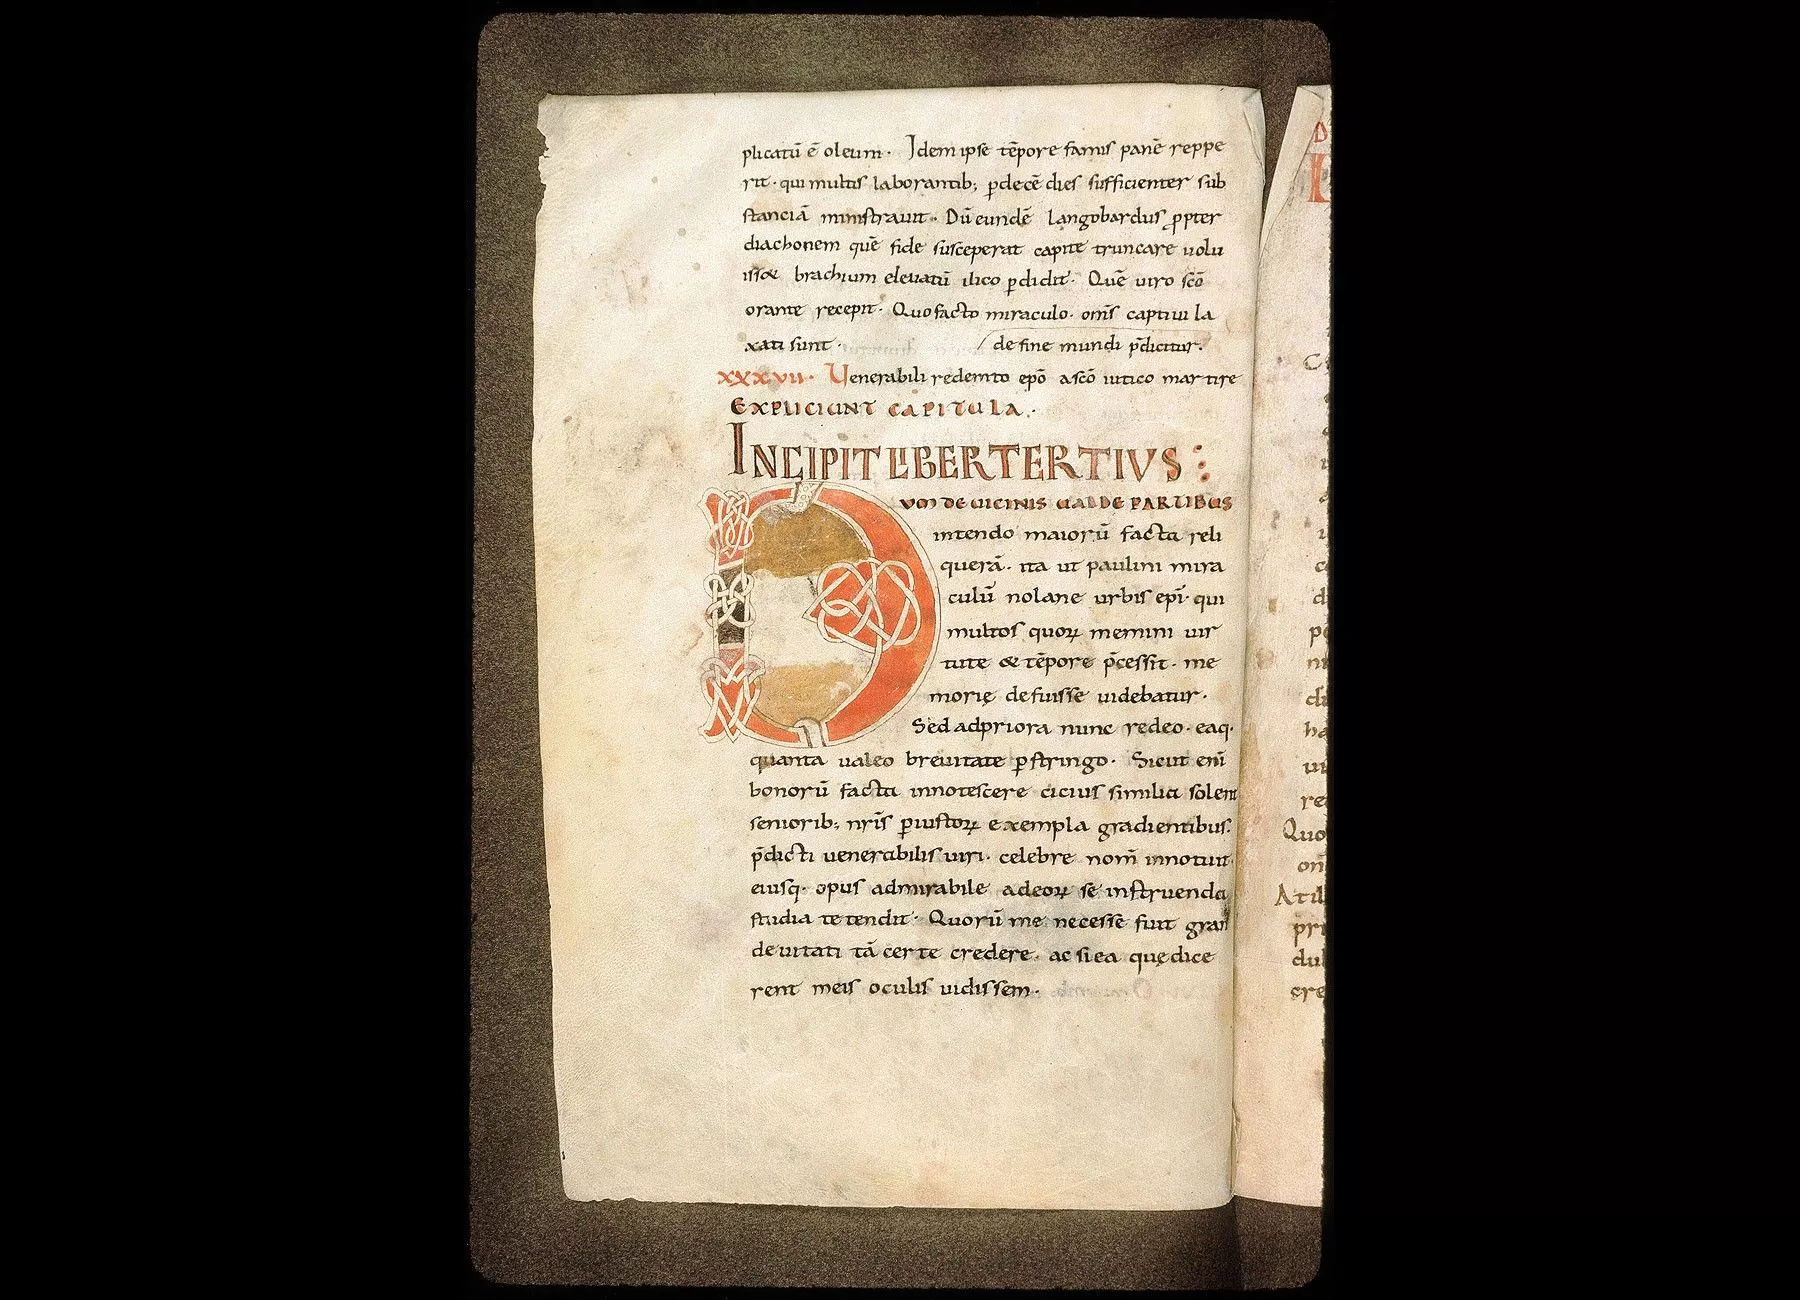 plicatū ē oleum. Idem ipse tēpore famis panē reppe
rit. qui multis laborantib; p̱ decē dies sufficienter sub
stanciā ministrauit. Dū eundē langobardus ꝓpter
diachonem quē fide susceperat capite truncare uolu
iss& brachium eleuatū ilico p̱didit. Quē uiro scō
orante recepit. Quo facto miraculo. om̄s captiui la
xati sunt.
de fine mundi p̄dicitur.
XXXVII. Venerabili redempto ep̄o a scō iutico martire
EXPLICIUNT CAPITULA.
INCIPIT LIBER TERTIVS
DUM DE UICINIS UALDE PARTIBUS
intendo maiorū facta reli
querā. ita ut paulini mira
culū nolane urbis ep̄i. qui
multos quoꝝ memini uir
tute & tēpore p̄cessit. me
morię defuisse uidebatur.
Sed ad priora nunc redeo. eaq.
quanta ualeo breuitate p̱stringo. Sicut eni
bonorū facta innotescere cicius similia solent
seniorib; nr̄is p̱ iustoꝝ exempla gradientibus.
p̄dicti uenerabilis uiri. celebre nom̄ innotuit.
eiusq. opus admirabile ad eoꝝ se instruenda
studia tetendit. Quorū me necesse fuit gran
deuitati tā certe credere. ac si ea quę dice
rent meis oculis uidissem.